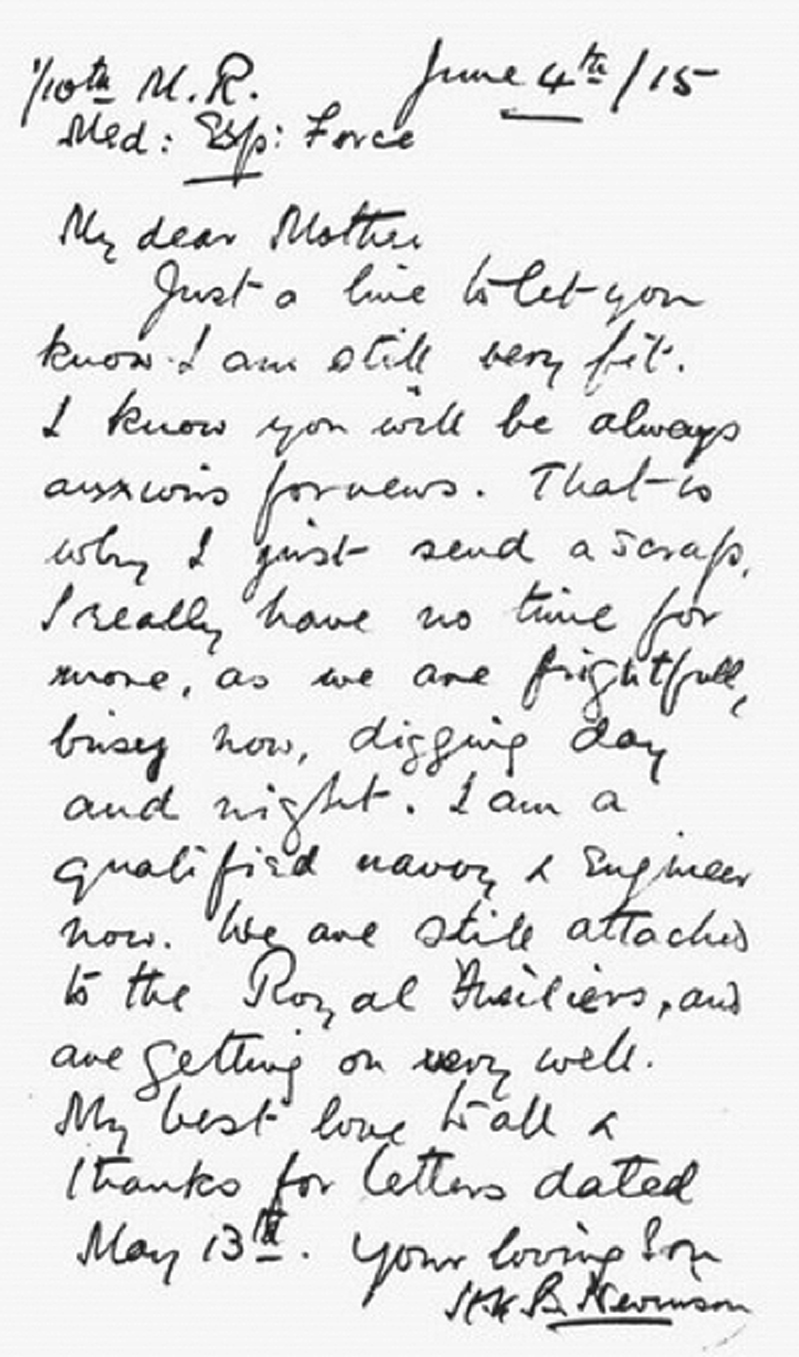 1/10th M.R. June 4th/15
Med: Exp: Force
My dear Mother
Just a line to let you
know I am still very fit.
I know you will be always
anxious for news. That is
why I just send a scrap,
I really have no time for
more, as we are frightfully
busy now, digging day
and night. I am a
qualified navvy & Engineer
now. We are still attached
to the Royal Fusiliers, and
are getting on very well.
My best love to all &
thanks for letters dated
May 13th. Your loving Son
B.